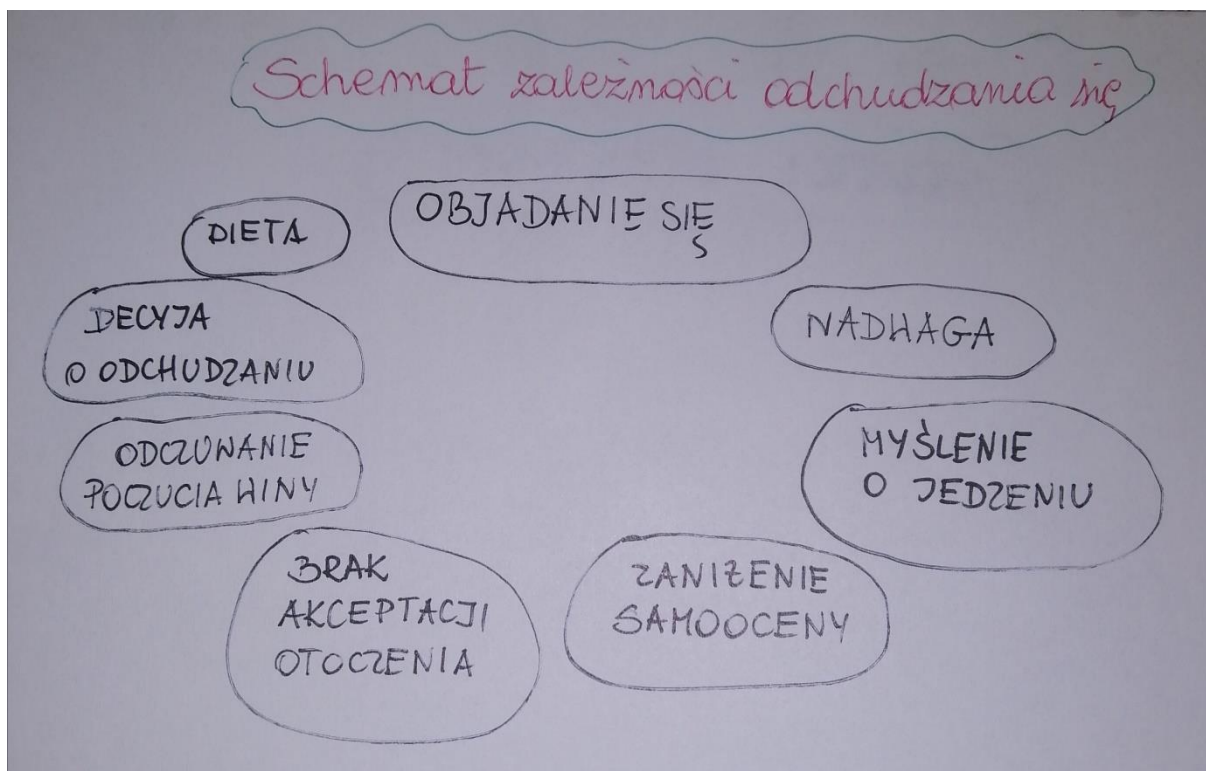 Schemat zależności odchudzania się
OBJADANIE SIĘ
DIETA
DECYJA
O ODCHUDZANIU
NADWAGA
ODCZUWANIE
POCZUCIA WINY
MYŚLENIE
O JEDZENIU
BRAK
AKCEPTACJI
OTOCZENIA
ZANIŻENIE
SAMOOCENY